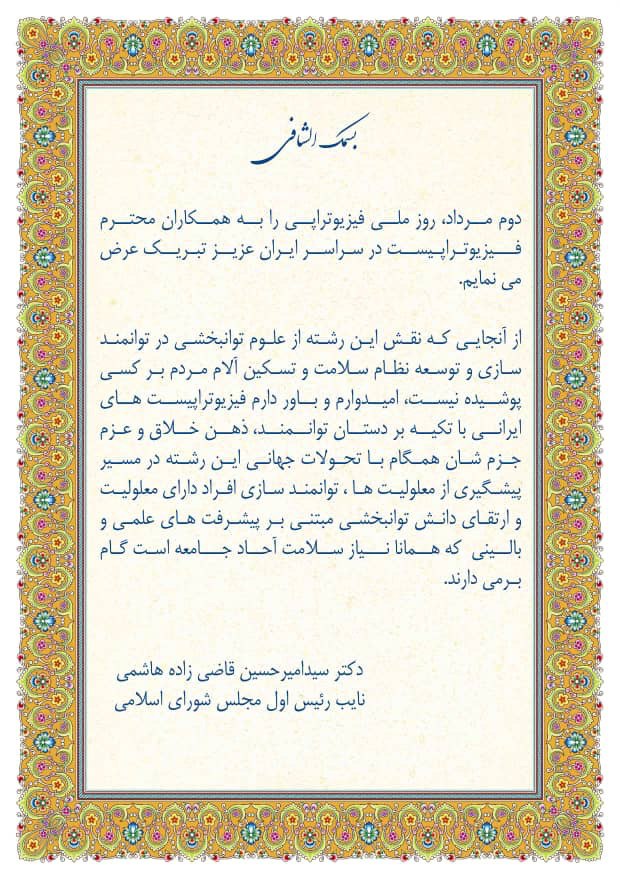 بسمک الشافی
دوم مرداد، روز ملی فیزیوتراپی را به همکاران محترم
فیزیوتراپیست در سراسر ایران عزیز تبریک عرض
می نمایم.
از آنجایی که نقش این رشته از علوم توانبخشی در توانمند
سازی و توسعه نظام سلامت و تسکین آلام مردم بر کسی
پوشیده نیست، امیدوارم و باور دارم فیزیوتراپیست های
ایرانی با تکیه بر دستان توانمند، ذهن خلاق و عزم
جزم شان همگام با تحولات جهانی این رشته در مسیر
پیشگیری از معلولیت ها ، توانمند سازی افراد دارای معلولیت
و ارتقای دانش توانبخشی مبتنی بر پیشرفت های علمی و
بالینی که همانا نیاز سلامت آحاد جامعه است گام
برمی دارند.
دکتر سیدامیرحسین قاضی زاده هاشمی
نایب رئیس اول مجلس شورای اسلامی